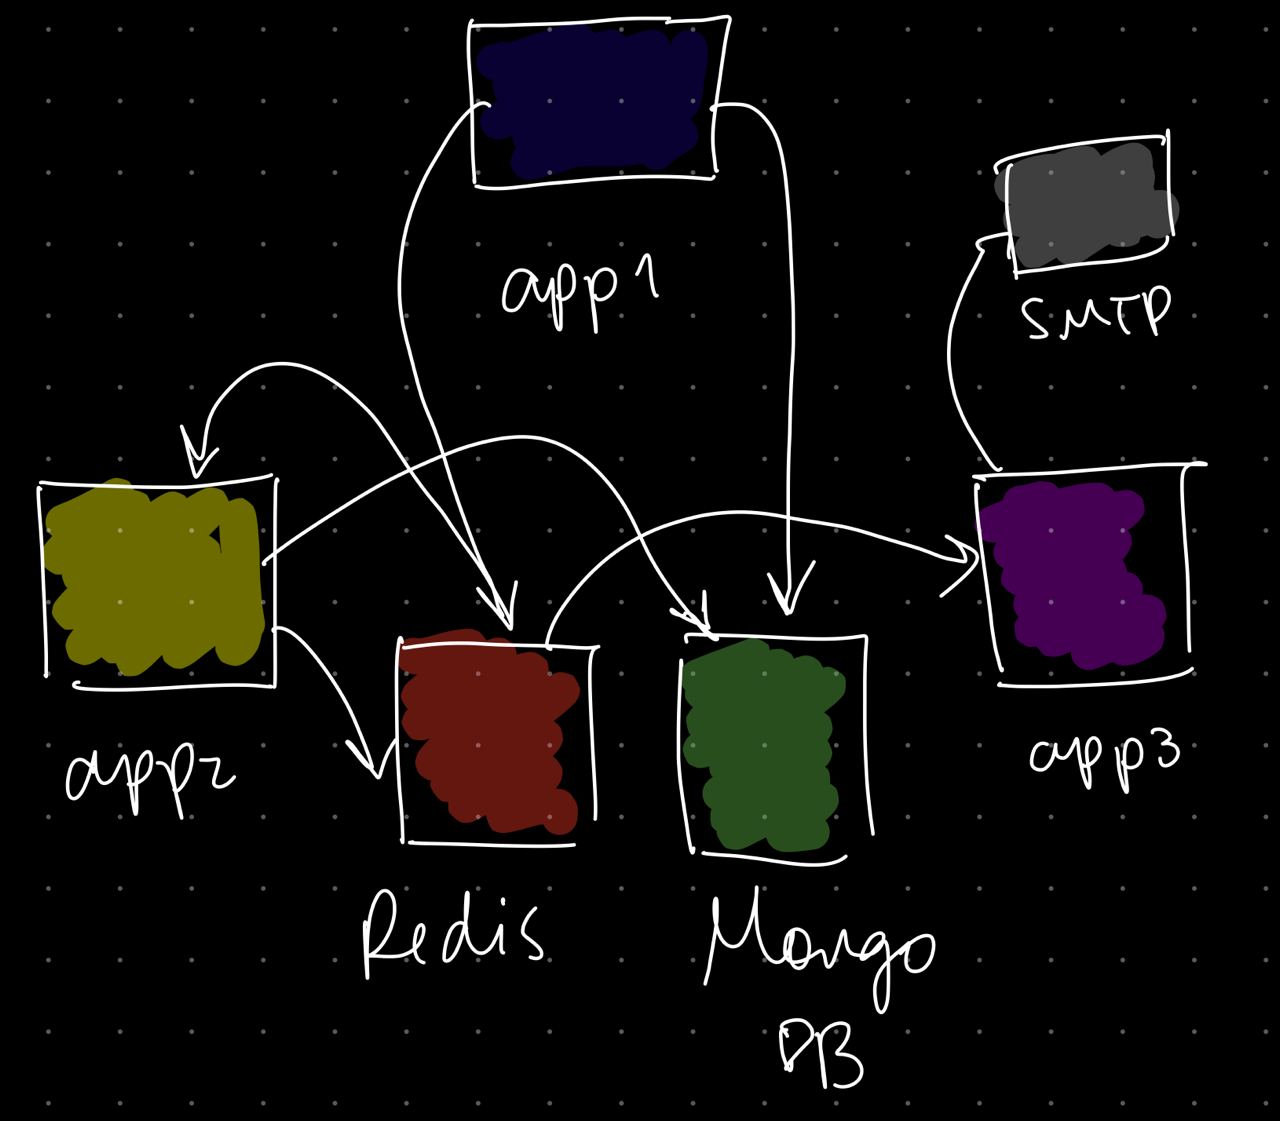 app1
SMTP
app2
app3
Redis
Mongo
DB